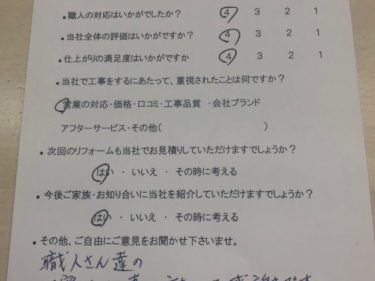 • 職人の対応はいかがでしたか？ 4 3 2 1
• 当社全体の評価はいかがですか？ 4 3 2 1
• 仕上がりの満足度はいかがですか 4 3 2 1
• 当社で工事をするにあたって、重視されたことは何ですか？
営業の対応・価格・口コミ・工事品質 ・会社ブランド
アフターサービス・その他( )
• 次回のリフォームも当社でお見積りしていただけますでしょうか？
はい ・ いいえ ・ その時に考える
• 今後ご家族・お知り合いに当社を紹介していただけますでしょうか？
はい ・ いいえ ・ その時に考える
• その他、ご自由にご意見をお聞かせ下さいませ。
職人さん達の